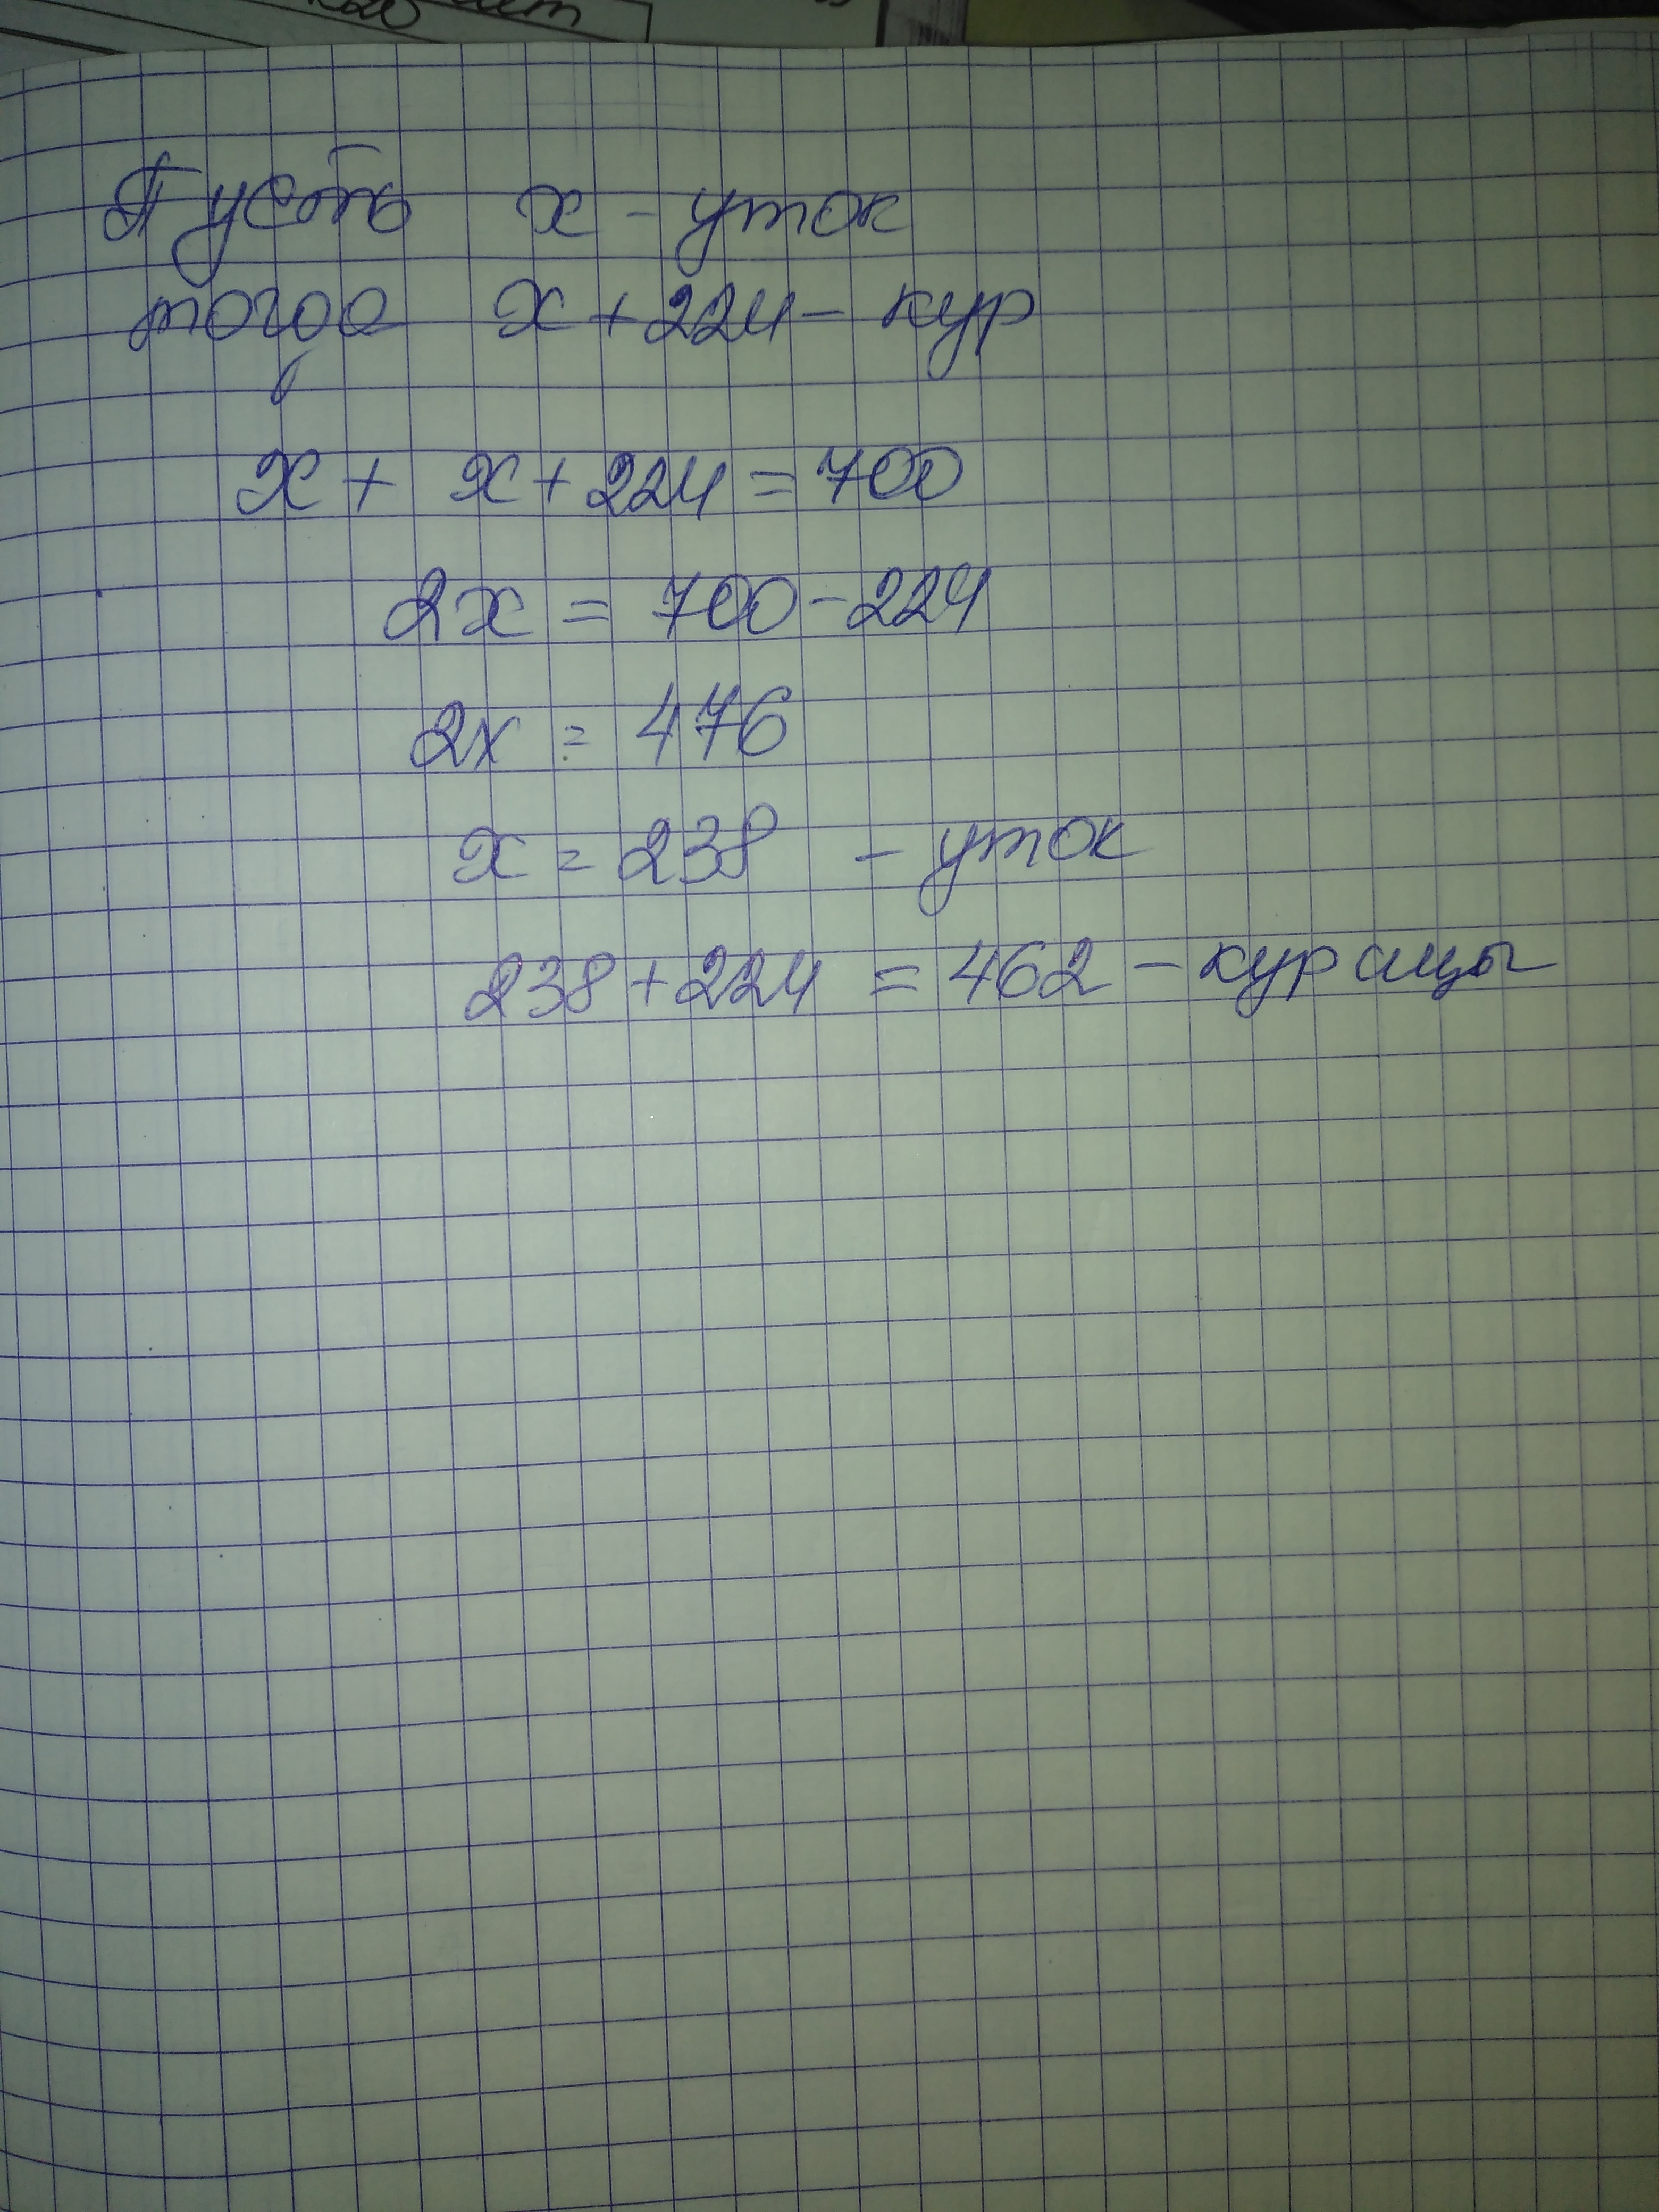 Пусть х - уток
тогда х + 224 - кур
х + х + 224 = 700
2х = 700 - 224
2х = 476
х = 238 - уток
238 + 224 = 462 - курицы